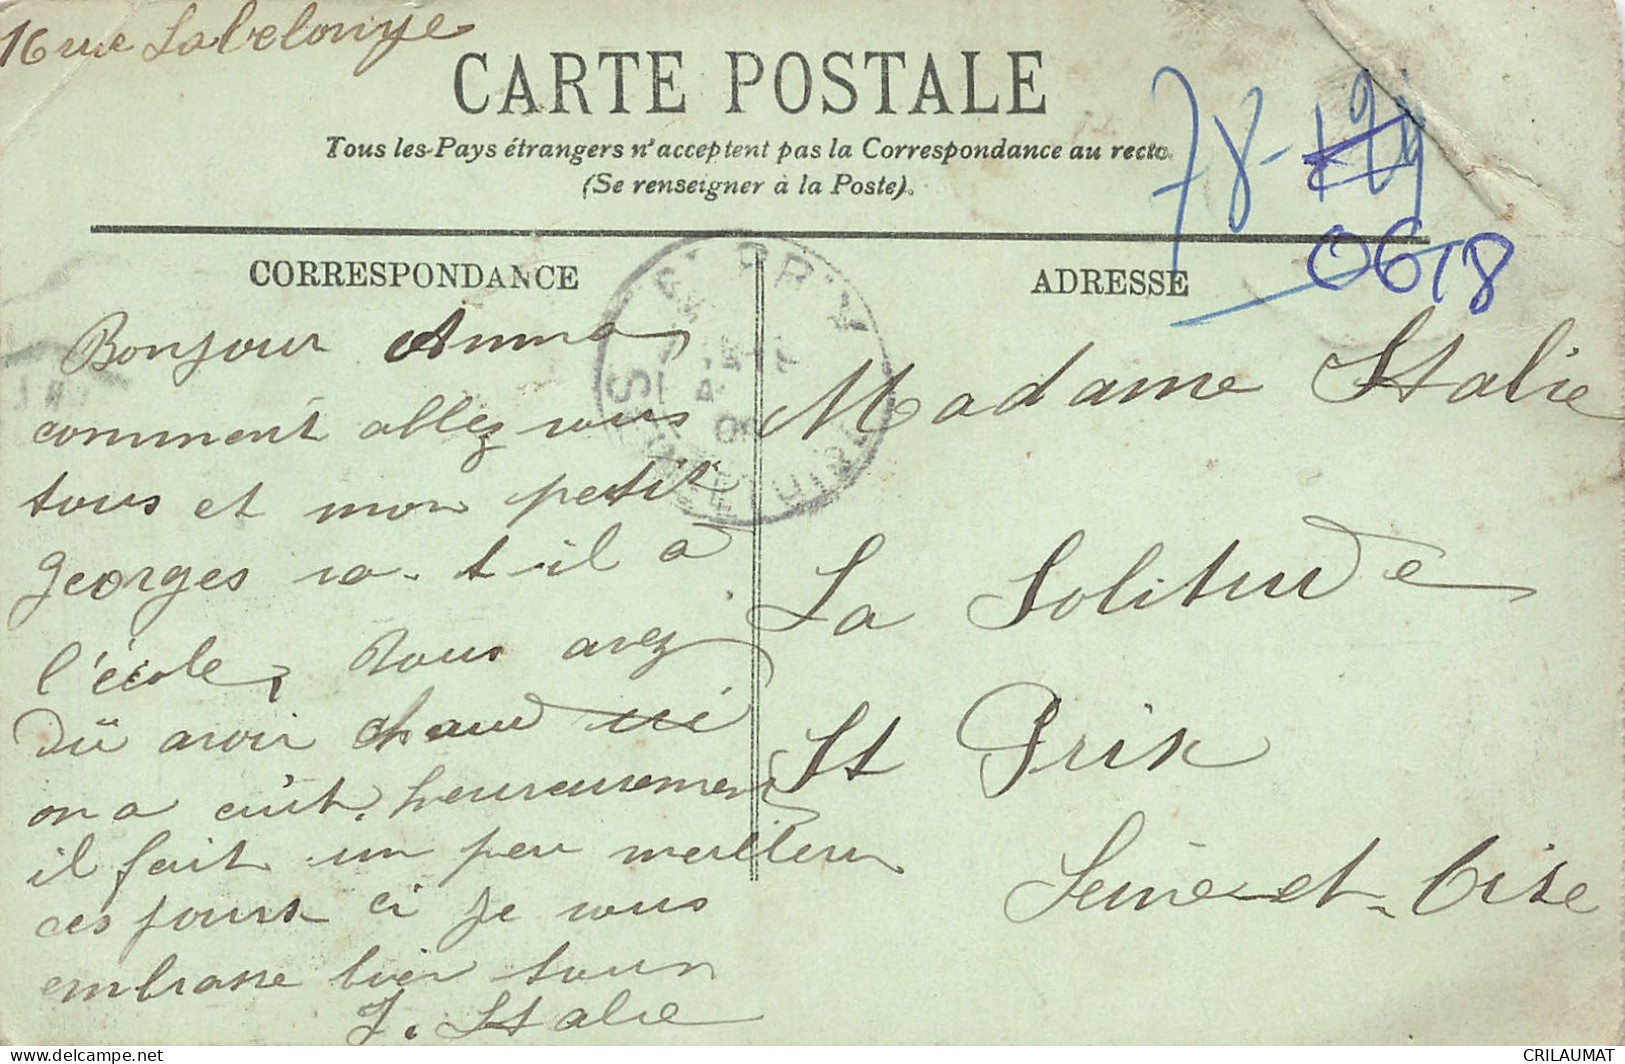 16 rue Labelonye
CARTE POSTALE
Tous les Pays étrangers n'acceptent pas la Correspondance au recto.
(Se renseigner à la Poste).
78-
0618
CORRESPONDANCE
ADRESSE
Bonjour Anna
comment allez vous
tous et mon petit
Georges va-t-il a
l'école, vous avez
dû avoir chaud ici
on a cuit, heureusement
il fait un peu meilleur
ces jours ci je vous
embrasse bien tous
J. Stalie
Madame Stalie
La Solitude
St Prix
Seine-et-Oise
ST PRIX
SEINE ET OISE
CRILAUMAT